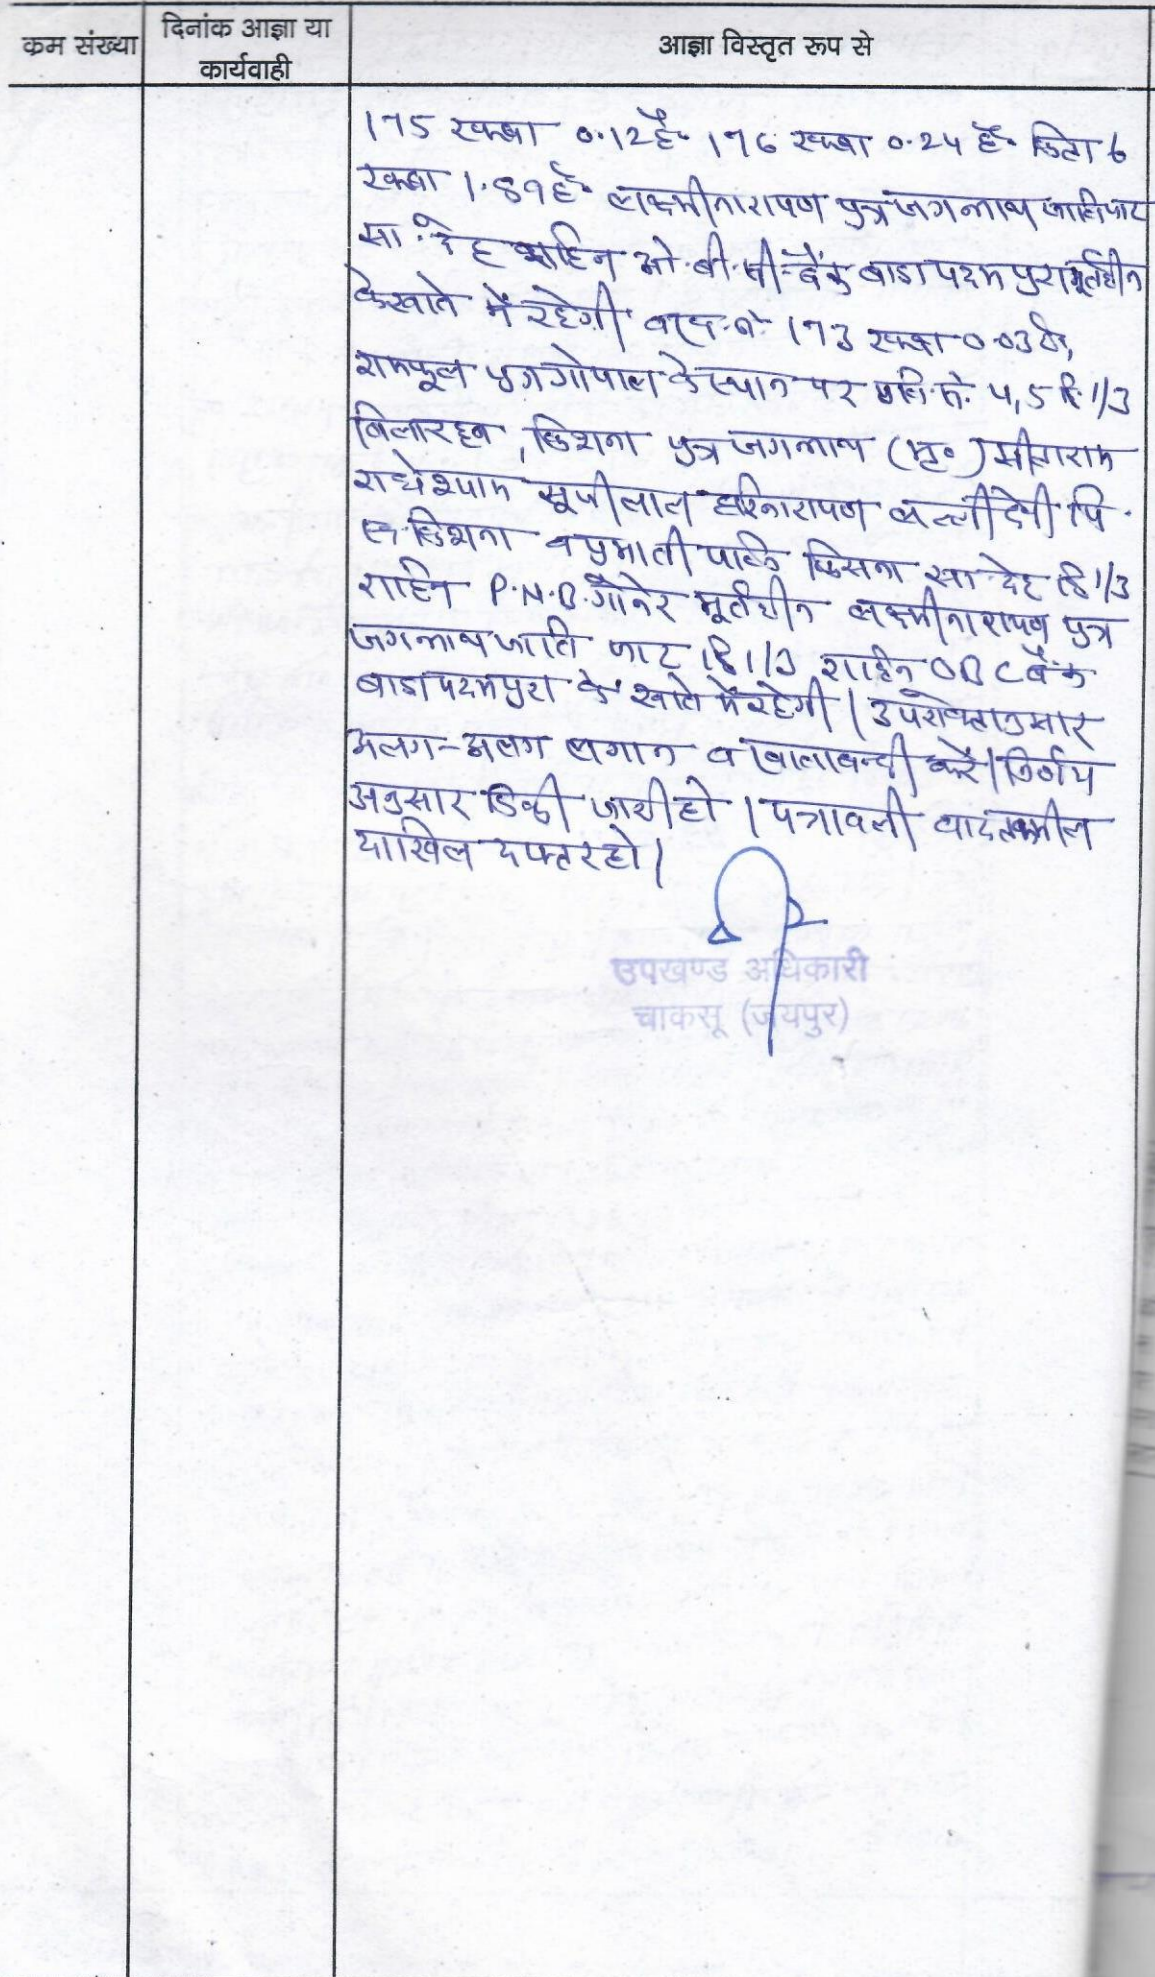 क्रम संख्या
दिनांक आज्ञा या
कार्यवाही
आज्ञा विस्तृत रूप से
175 रकबा 0.12 है॰ 176 रकबा 0.24 है॰ किता 6
रकबा 1.89 है॰ लक्ष्मीनारायण पुत्र जगन्नाथ जाति जाट
सा॰ देह राहिन ओ.बी.सी. बैंक बाडा पदमपुरा मुर्तहीन
के खाते में रहेगी 173 रकबा 0.03 है,
रामफूल पुत्र गोपाल के स्थान पर प्रति.सं. 4,5 हि. 1/3
बिलारहन, किशना पुत्र जगन्नाथ (मृ॰) सीताराम
राधेश्याम सूजीलाल हरिनारायण देवी पि.
किशना व प्रभाती पत्नि किसना सा. देह हि 1/3
राहिन P.N.B. गोनेर मुर्तहीन लक्ष्मीनारायण पुत्र
जगन्नाथ जाति जाट हि 1/3 राहिन OBC बैंक
बाडा पदमपुरा के खाते में रहेगी। उपरोक्तानुसार
अलग-अलग लगान व खाताबन्दी करें। निर्णय
अनुसार डिक्री जारी हो। पत्रावली बाद तकमील
दाखिल दफ्तर हो।
उपखण्ड अधिकारी
चाकसू (जयपुर)